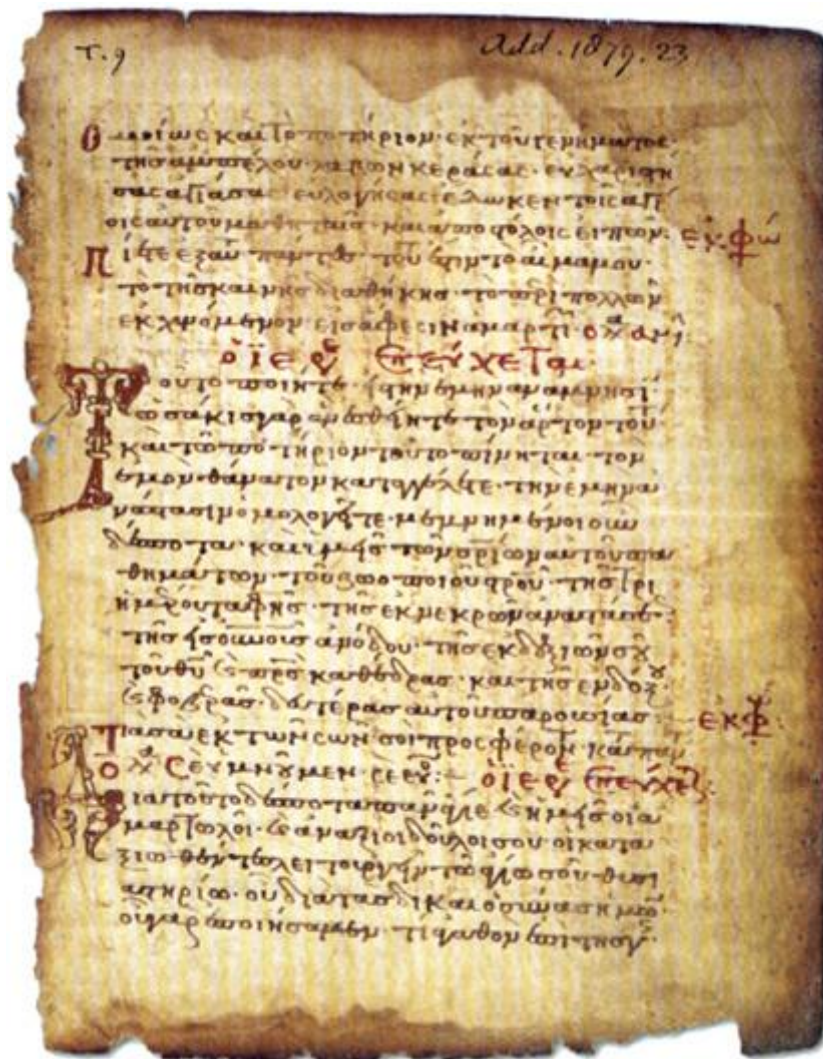 T. 9 Add. 1879. 23
Ὁμοίως καὶ τὸ ποτήριον· ἐκ τοῦ γενήματος
τῆς ἀμπέλου· λαβὼν κεράσας· εὐχαριστή
σας ἁγιάσας· εὐλογήσας ἔδωκεν τοῖς ἁγί
οις αὐτοῦ μαθηταῖς καὶ ἀποστόλοις εἰπών· ἐκφώ
Πίετε ἐξ αὐτοῦ πάντες· τοῦτ ἐστὶν τὸ αἷμα μου·
τὸ τῆς καινῆς διαθήκης· τὸ ὑπὲρ πολλῶν
ἐκχυνόμενον εἰς ἄφεσιν ἁμαρτι· ὁ λα ἀμὴ
ὁ ἱερεὺ ἐπεύχεται
Τοῦτο ποιεῖτε εἰς τὴν ἐμὴν ἀνάμνησι
ὡσάκις γὰρ ἂν ἐσθίητε τὸν ἄρτον τοῦ
καὶ τὼ ποτήριον τοῦτο πίνηται· τὸν
ἐμὸν θάνατον καταγγέλετε· τὴν ἐμὴν ἀ
νάστασιν ὁμολογεῖτε· μεμνημένοι οὖν
δέσποτα· καὶ ἡμεῖς τῶν σριων αὐτοῦ πα
θημάτων· τοῦ ζωοποιοῦ σροῦ· τῆς τρι
ημέρου ταφῆς· τῆς ἐκ νεκρῶν ἀναστάσε·
τῆς εἰς οὐνοὺς ἀνόδου· τῆς ἐκ δεξιῶν σου
τοῦ θυ καὶ πρς καθέδρας· καὶ τῆς ἐνδόξου
καὶ φοβερᾶς δευτέρας αὐτοῦ παρουσίας· ἐκφ
Τὰ σὰ ἐκ τῶν σῶν σοὶ προσφέρομ κατὰ πάν
ὁ λα Σὲ ὑμνοῦμεν· ὁ ἱερεὺ ἐπεύχετ
Διὰ τοῦτο δέσποτα πανάγιε καὶ ἡμεῖς οἱ ἁ
μαρτωλοὶ· καὶ ἀνάξιοι δοῦλοι σου οἱ κατα
ξιωθέντες λειτουργεῖν τῶ ἁγίω σου θυσι
αστηρίω· οὐ διὰ τὰς δικαιοσύνας ἡμῶ
οὐ γὰρ ἐποιήσαμέν τι ἀγαθὸν ἐπὶ τῆς γ